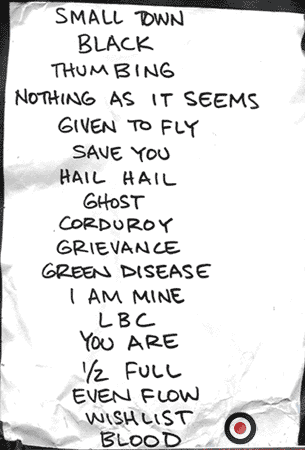 SMALL TOWN
BLACK
THUMBING
NOTHING AS IT SEEMS
GIVEN TO FLY
SAVE YOU
HAIL HAIL
GHOST
CORDUROY
GRIEVANCE
GREEN DISEASE
I AM MINE
LBC
YOU ARE
1/2 FULL
EVEN FLOW
WISHLIST
BLOOD